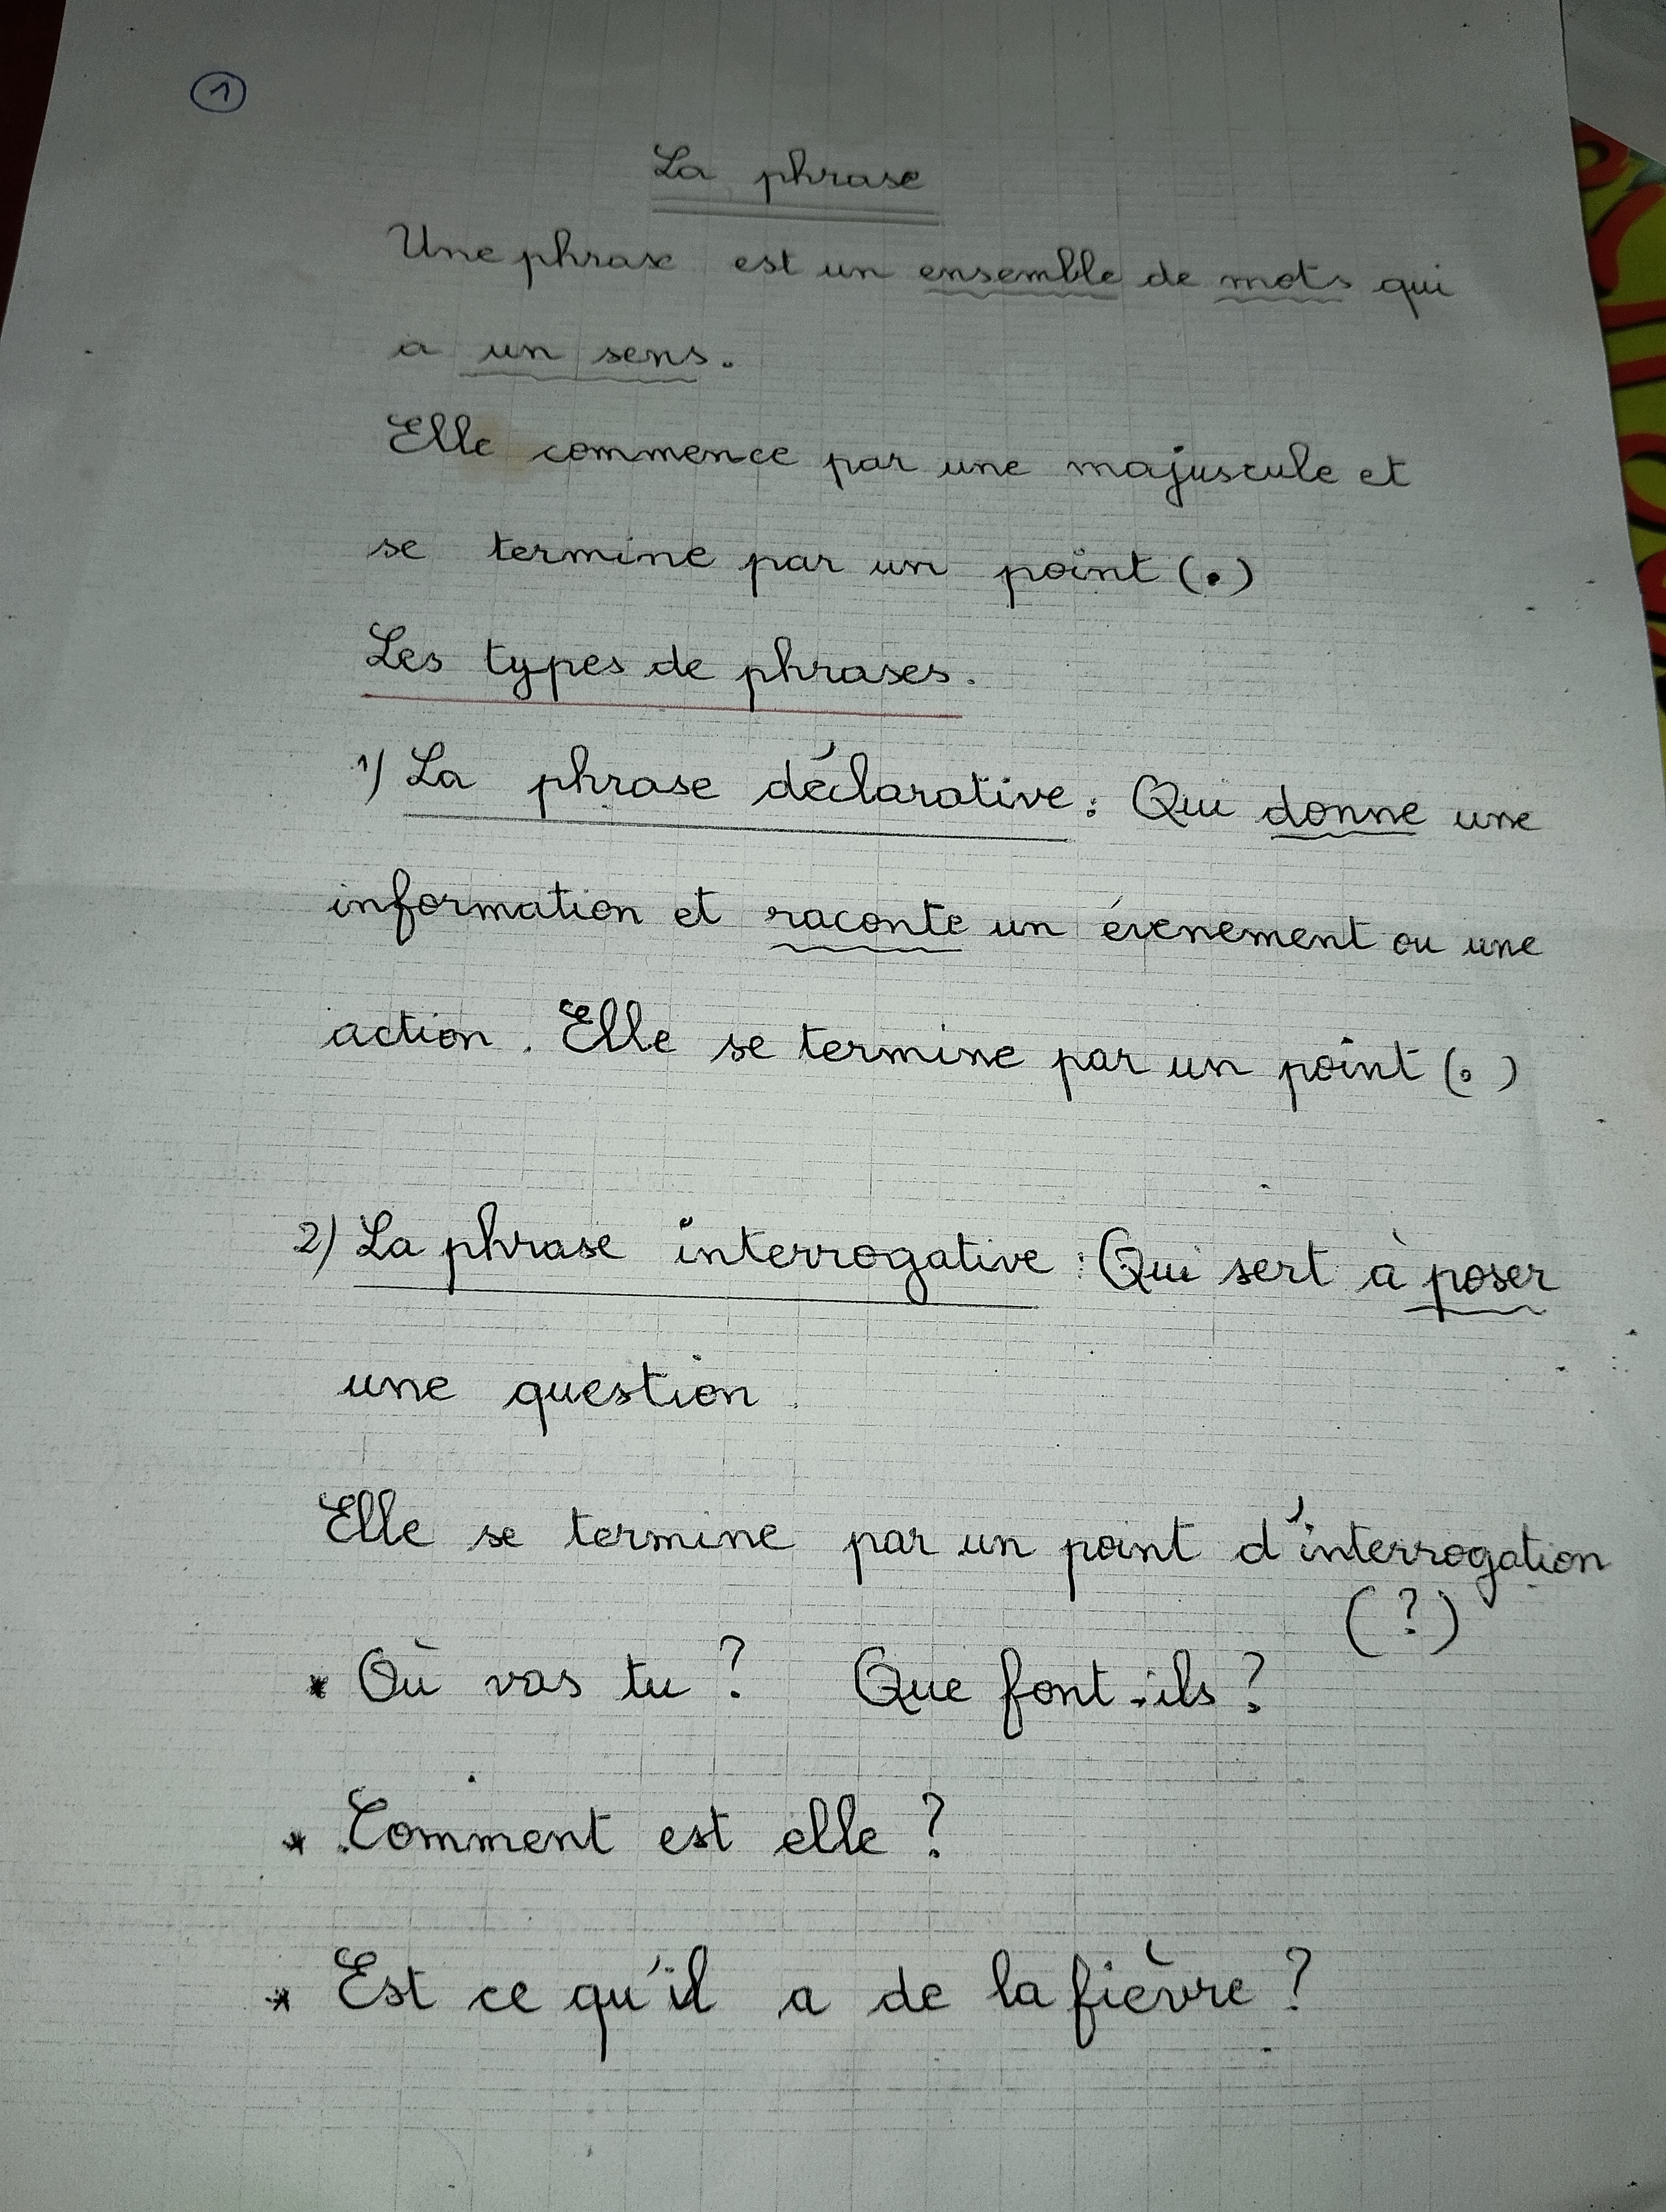 1
La phrase
Une phrase est un ensemble de mots qui
a un sens.
Elle commence par une majuscule et
se termine par un point (.)
Les types de phrases.
1) La phrase déclarative : Qui donne une
information et raconte un évenement ou une
action. Elle se termine par un point (.)
2) La phrase interrogative : Qui sert à poser
une question.
Elle se termine par un point d'interrogation
(?)
* Où vas tu ? Que font-ils ?
* Comment est elle ?
* Est ce qu'il a de la fièvre ?